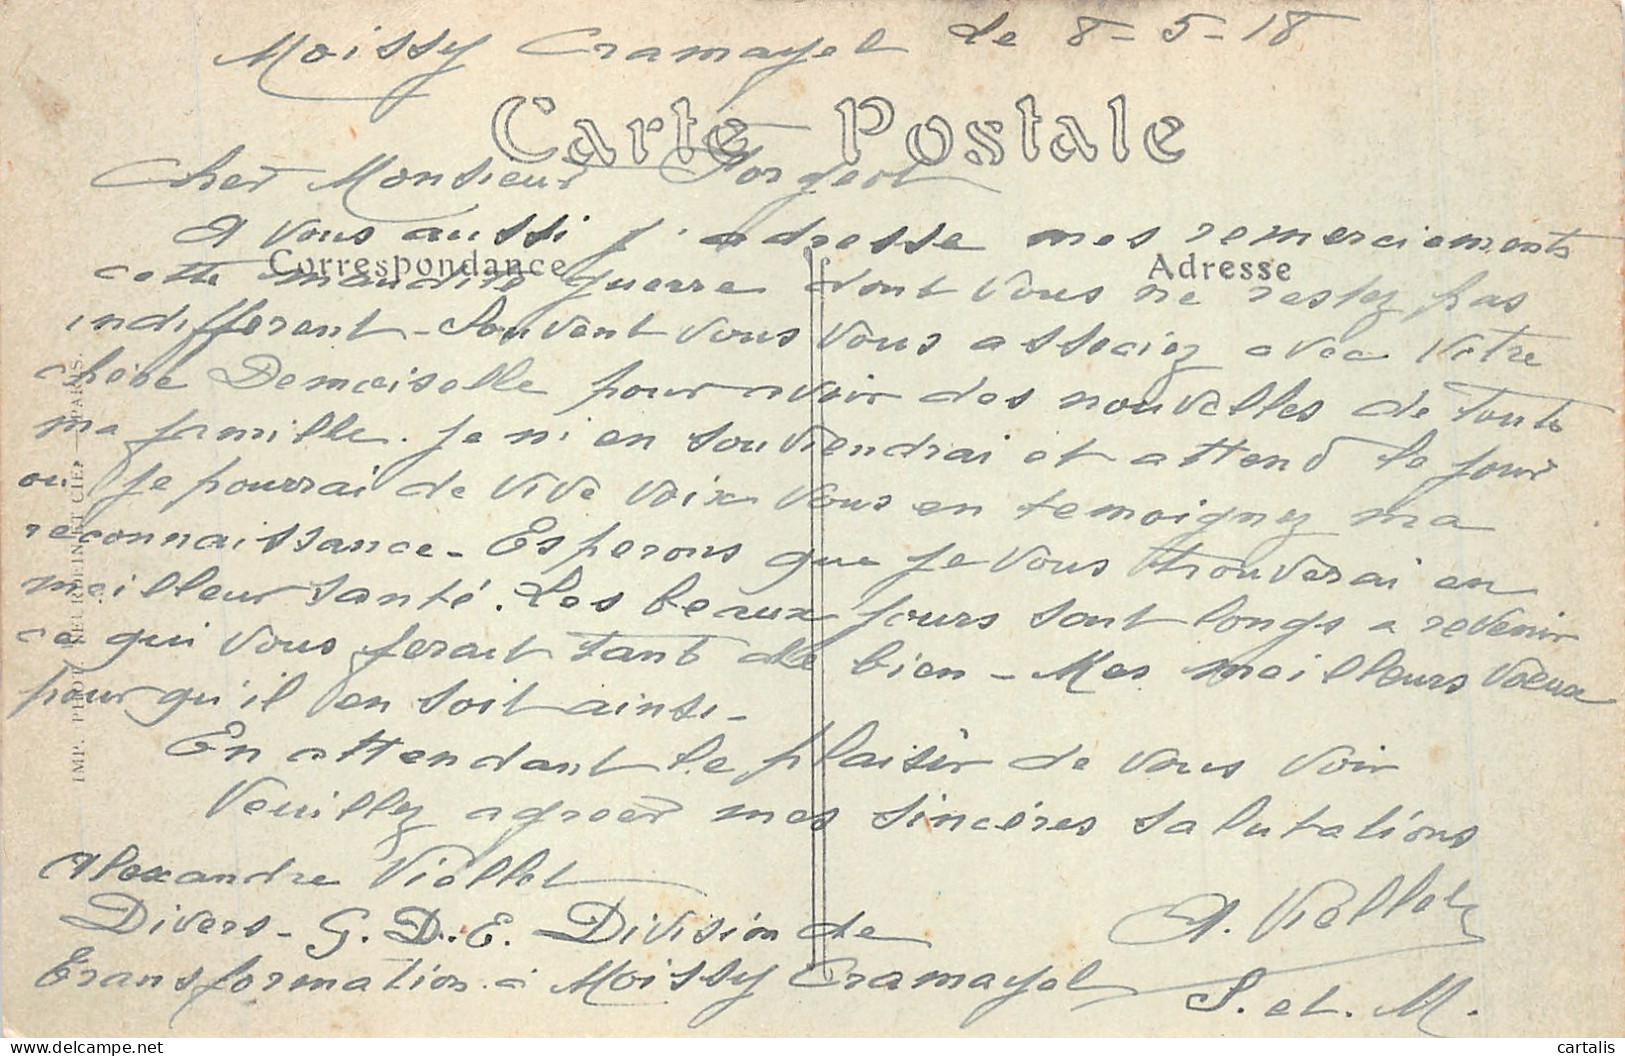 Moissy Cramayel le 8-5-18
Carte Postale
Cher Monsieur Forgeot
A vous aussi j'adresse mes remerciements
Correspondance
Adresse
cette maudite guerre dont vous ne restez pas
indifferent - Souvent vous vous associez avec votre
chère Demoiselle pour avoir des nouvelles de toute
ma famille. Je m'en souviendrai et attend le jour
ou je pourrai de vive voix vous en temoignez ma
reconnaissance - Esperons que je vous trouverai en
meilleur santé. Les beaux jours sont longs a revenir
ce qui vous ferait tant de bien - Mes meilleurs voeux
pour qu'il en soit ainsi -
En attendant le plaisir de vous voir
Veuillez agréer mes sincères salutations
Alexandre Viollet
A. Viollet
Divers - G. D. E. Division de
Transformation à Moissy Cramayel
S. et. M.
PARIS.
cartalis